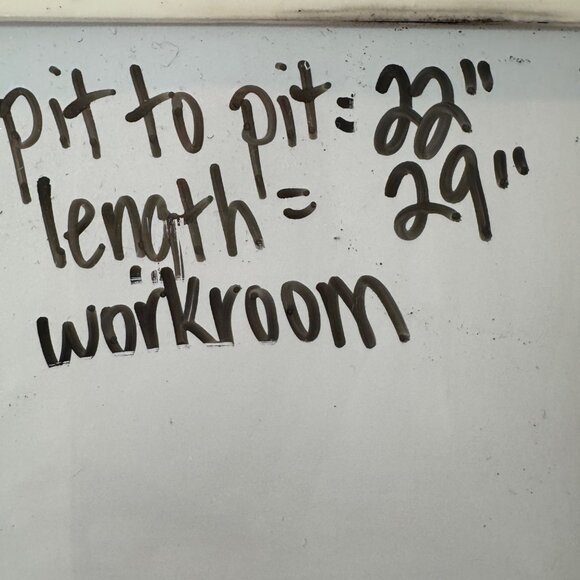 pit to pit = 22"
length = 29"
workroom